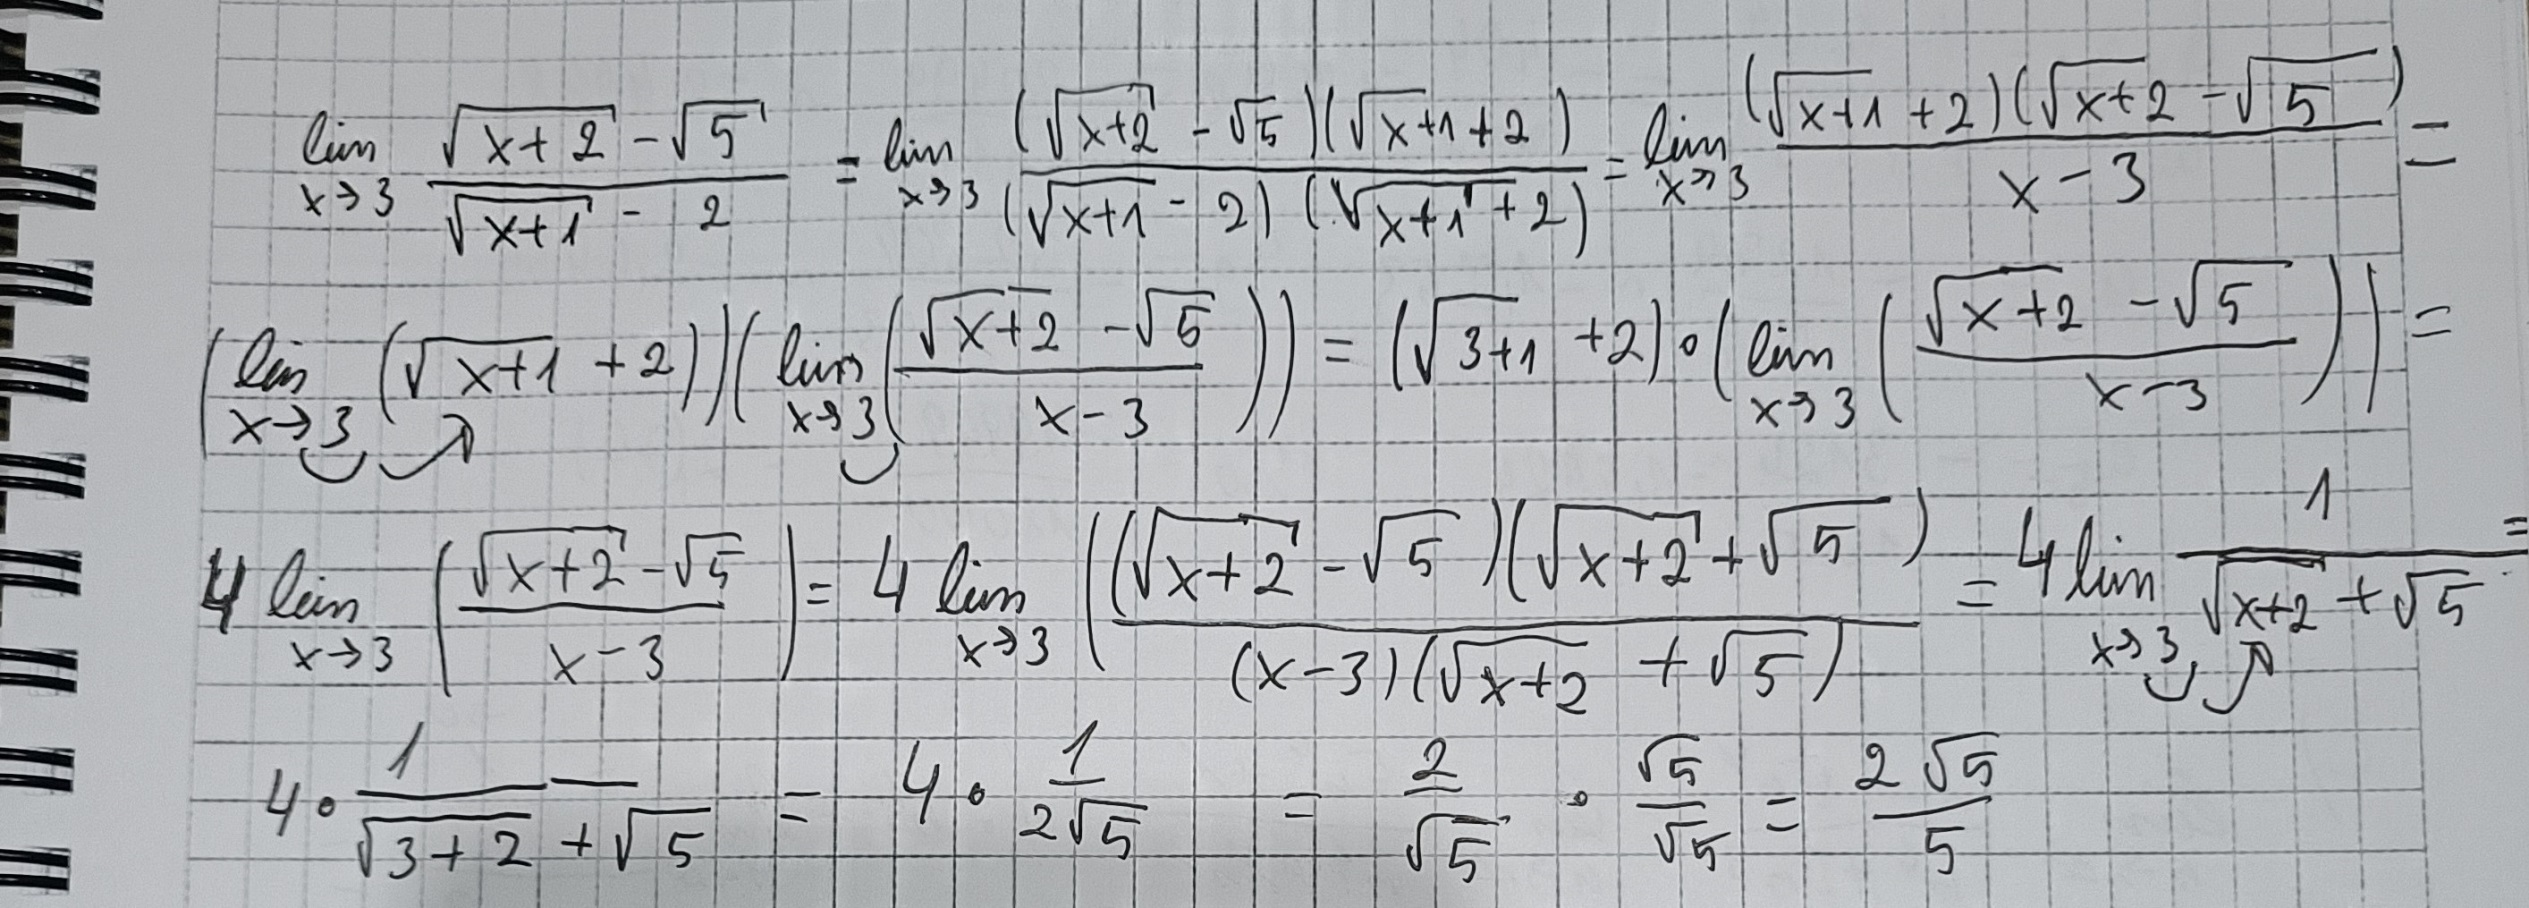 lim x→3 (√(x+2) - √5)/(√(x+1) - 2) = lim x→3 ((√(x+2) - √5)(√(x+1) + 2))/((√(x+1) - 2)(√(x+1) + 2)) = lim x→3 ((√(x+1) + 2)(√(x+2) - √5))/(x-3) =
(lim x→3 (√(x+1) + 2))(lim x→3 ((√(x+2) - √5)/(x-3))) = (√(3+1) + 2)·(lim x→3 ((√(x+2) - √5)/(x-3))) =
4 lim x→3 ((√(x+2) - √5)/(x-3)) = 4 lim x→3 (((√(x+2) - √5)(√(x+2) + √5))/((x-3)(√(x+2) + √5))) = 4 lim x→3 1/(√(x+2) + √5) =
4 · 1/(√(3+2) + √5) = 4 · 1/(2√5) = 2/√5 · √5/√5 = 2√5/5